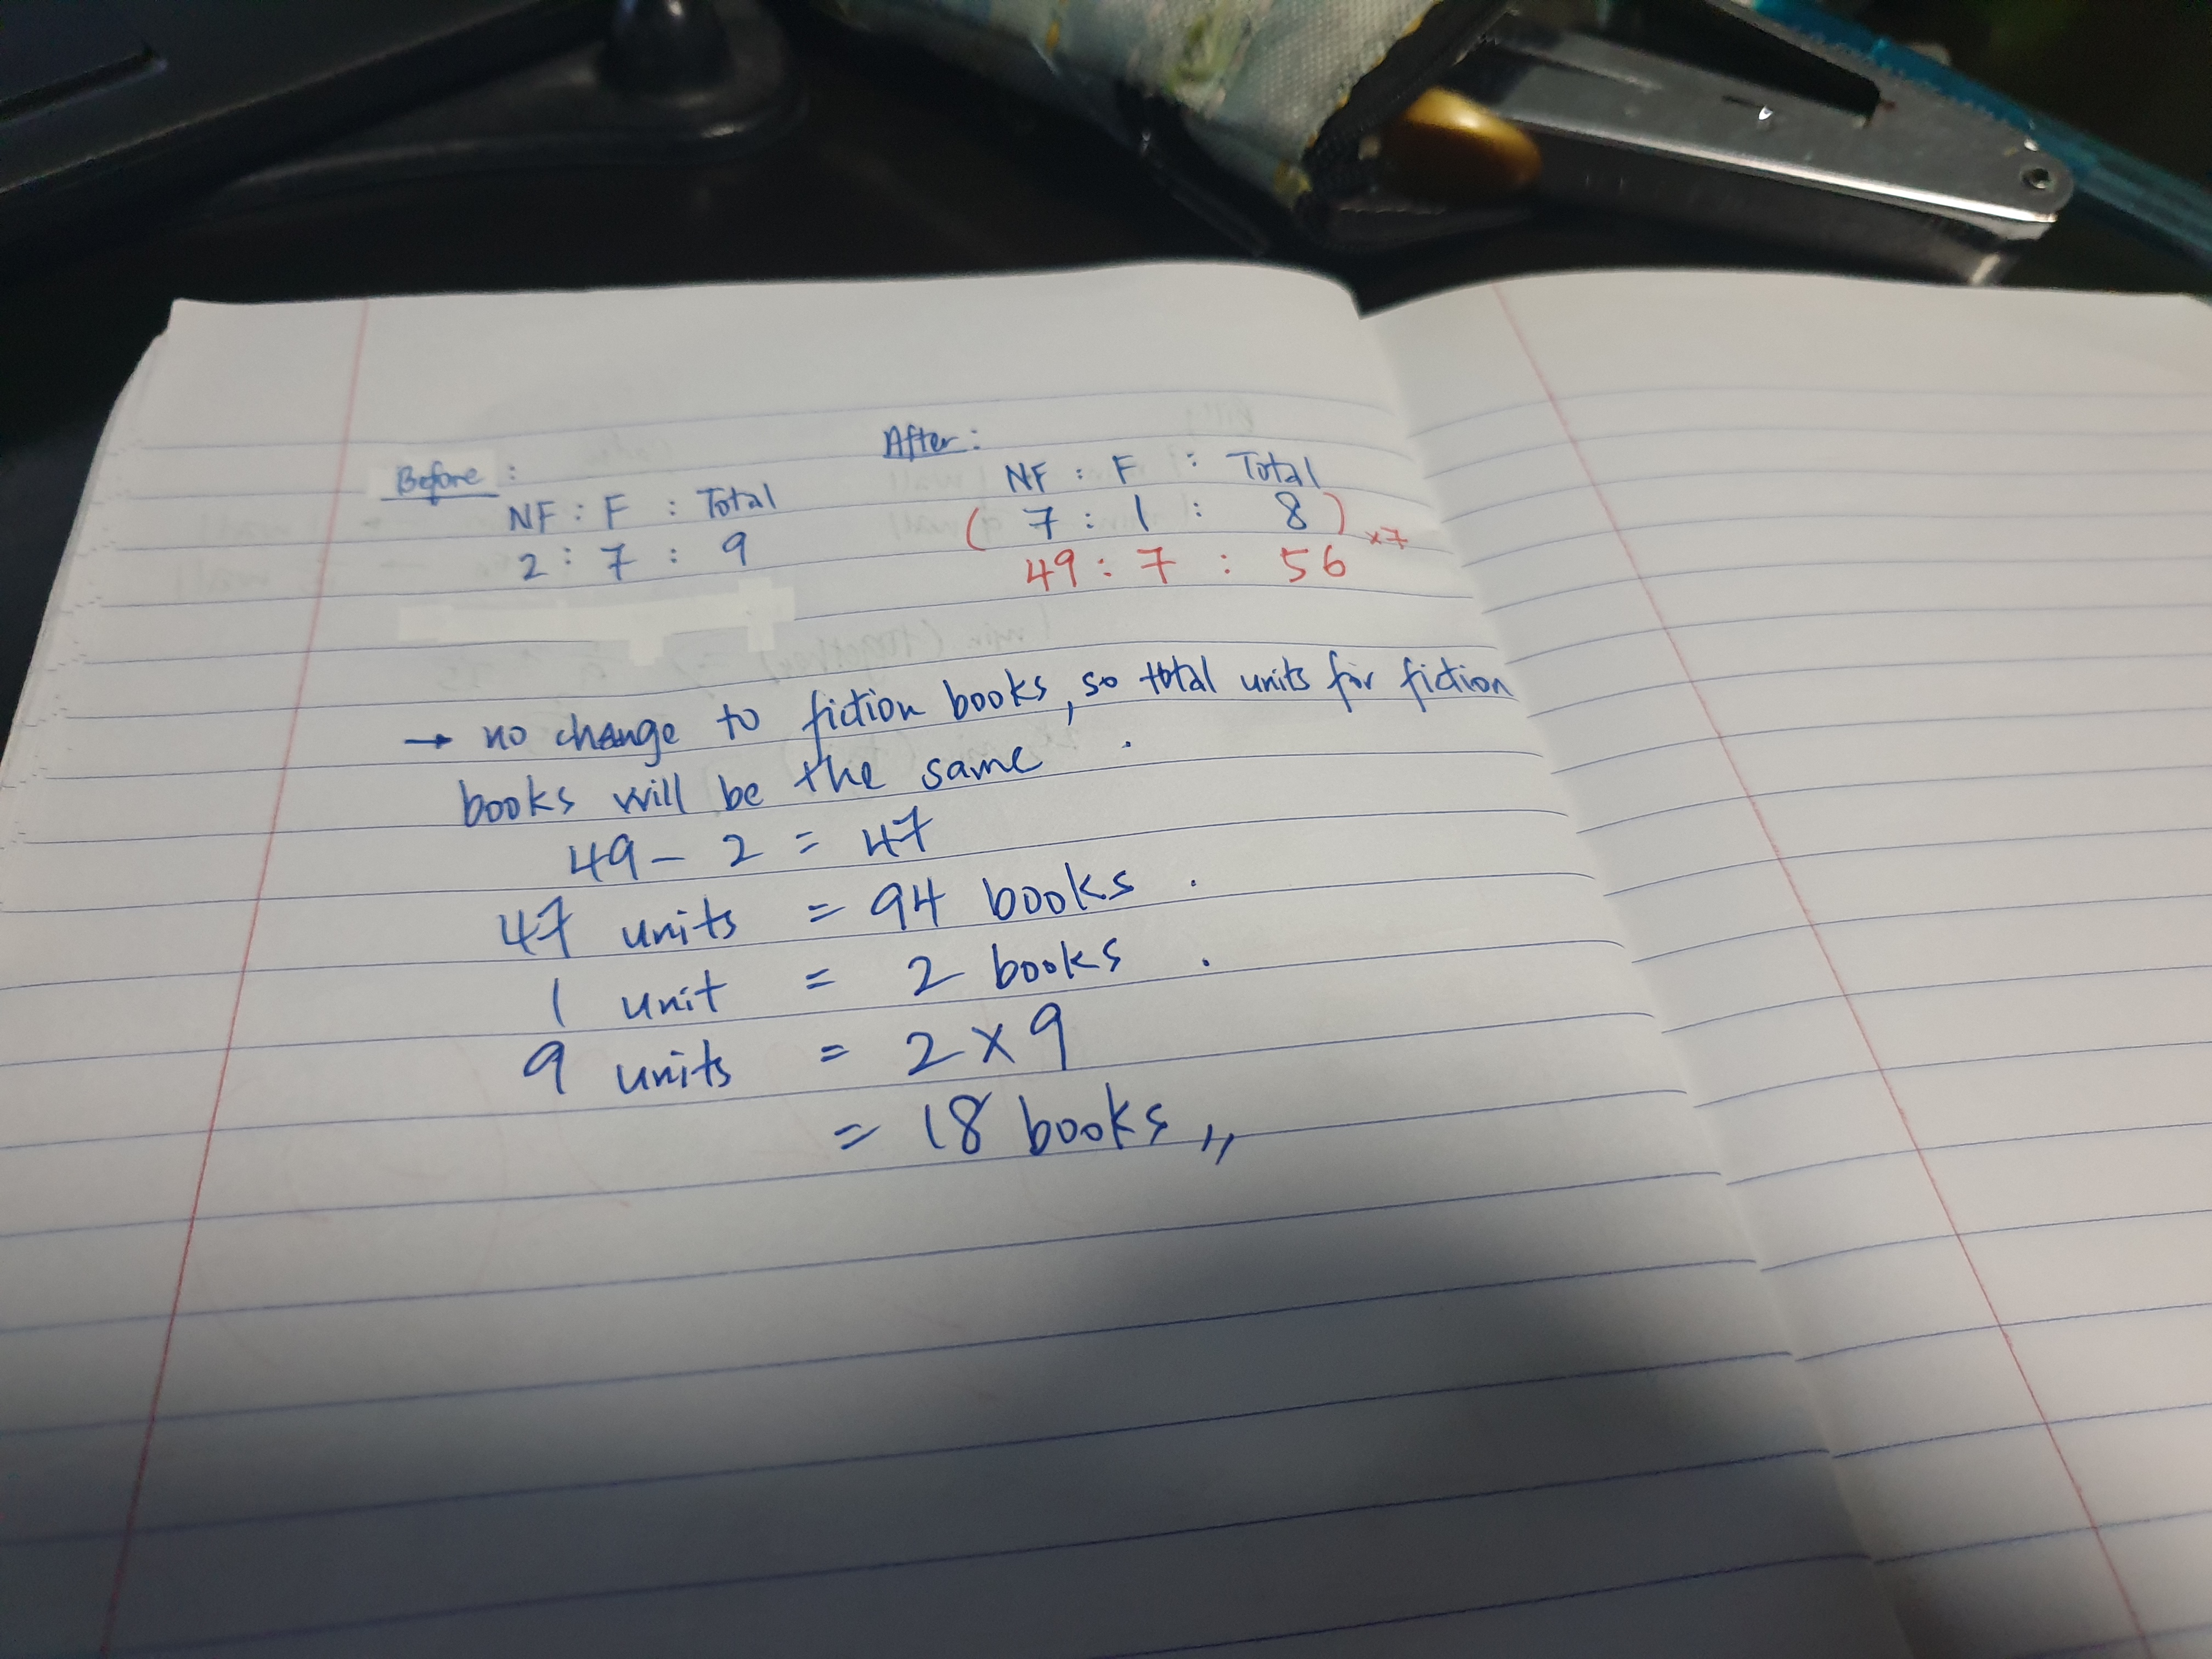 Before :
NF : F : Total
2 : 7 : 9
After :
NF : F : Total
( 7 : 1 : 8 ) x7
49 : 7 : 56
→ no change to fiction books, so total units for fiction
books will be the same .
49 - 2 = 47
47 units = 94 books .
1 unit = 2 books .
9 units = 2 x 9
= 18 books ,,